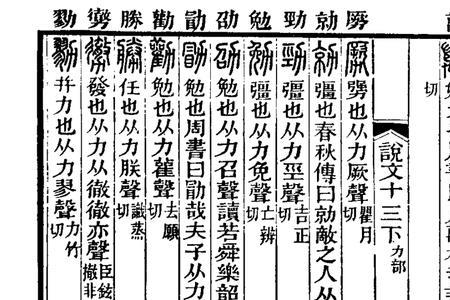 切
說文十三下 力部
勥也从力厥聲瞿月切
勍 勍 彊也春秋傳曰勍敵之人从
勁 勁 彊也从力巠聲吉正切
勉 勉 彊也从力免聲亡辨切
劭 劭 勉也从力召聲讀若舜樂韶
勖 勖 勉也周書曰勖哉夫子从力
勸 勸 勉也从力雚聲去願切
勝 勝 任也从力朕聲識蒸切
勶 勶 發也从力徹徹亦聲臣鉉撤非
勠 勠 并力也从力翏聲力竹切